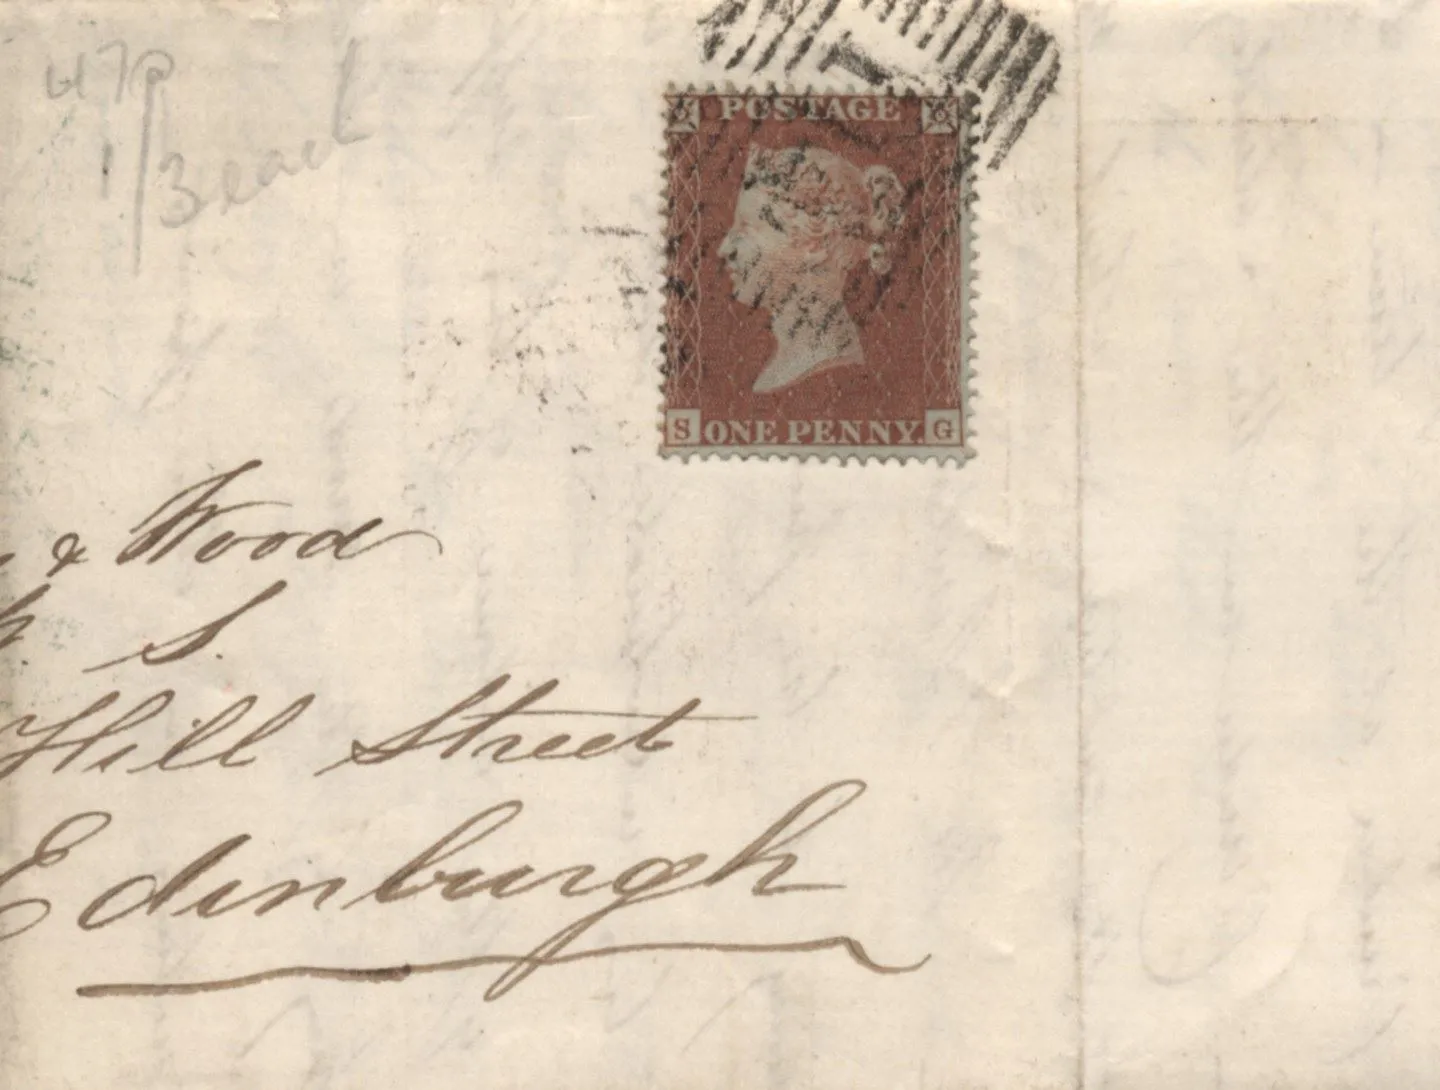 47p
1/3 each
POSTAGE
S ONE PENNY. G
& Wood
S.
Hill Street
Edinburgh